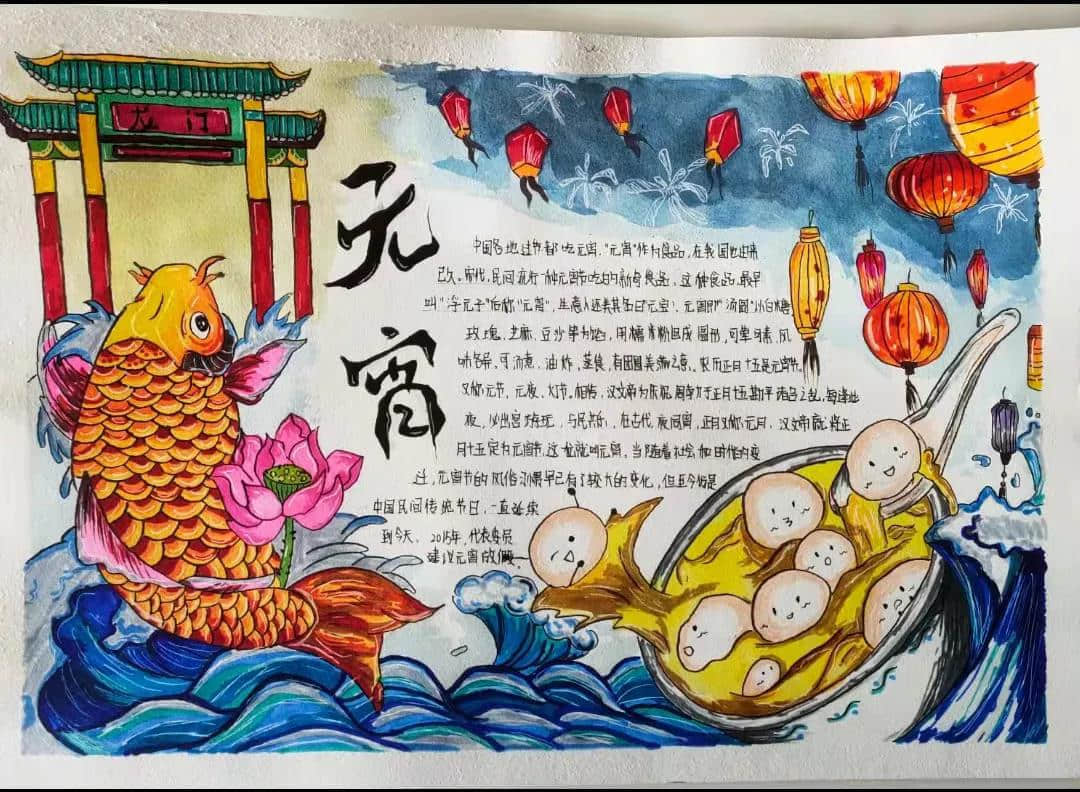 龙门
元宵
中国各地过节都吃元宵,"元宵"作为食品,在我国也由来
已久。宋代,民间流行一种元宵节吃的新奇食品。这种食品,最早
叫"浮元子"后称"元宵",生意人还美其名曰元宝。元宵即"汤圆"以白糖、
玫瑰、芝麻、豆沙等为馅,用糯米粉包成圆形,可荤可素,风
味各异。可汤煮、油炸、蒸食,有团圆美满之意。农历正月十五是元宵节,
又称元节、元夜、灯节。相传,汉文帝为庆祝周勃于正月十五勘平诸吕之乱,每逢此
夜,必出宫游玩,与民共乐,在古代,夜同宵,正月又称元月,汉文帝就将正
月十五定为元宵节,这夜就叫元宵。当随着社会和时代的变
迁,元宵节的风俗习惯早已有了较大的变化,但至今仍是
中国民间传统节日,一直延续
到今天。2015年,代表委员
建议元宵放假。